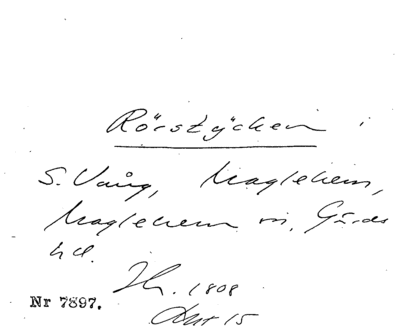 Rörstycken
S. Vång, Maglehem,
Maglehem sn, Gärds
hd.
Nr 7897.
1808
15